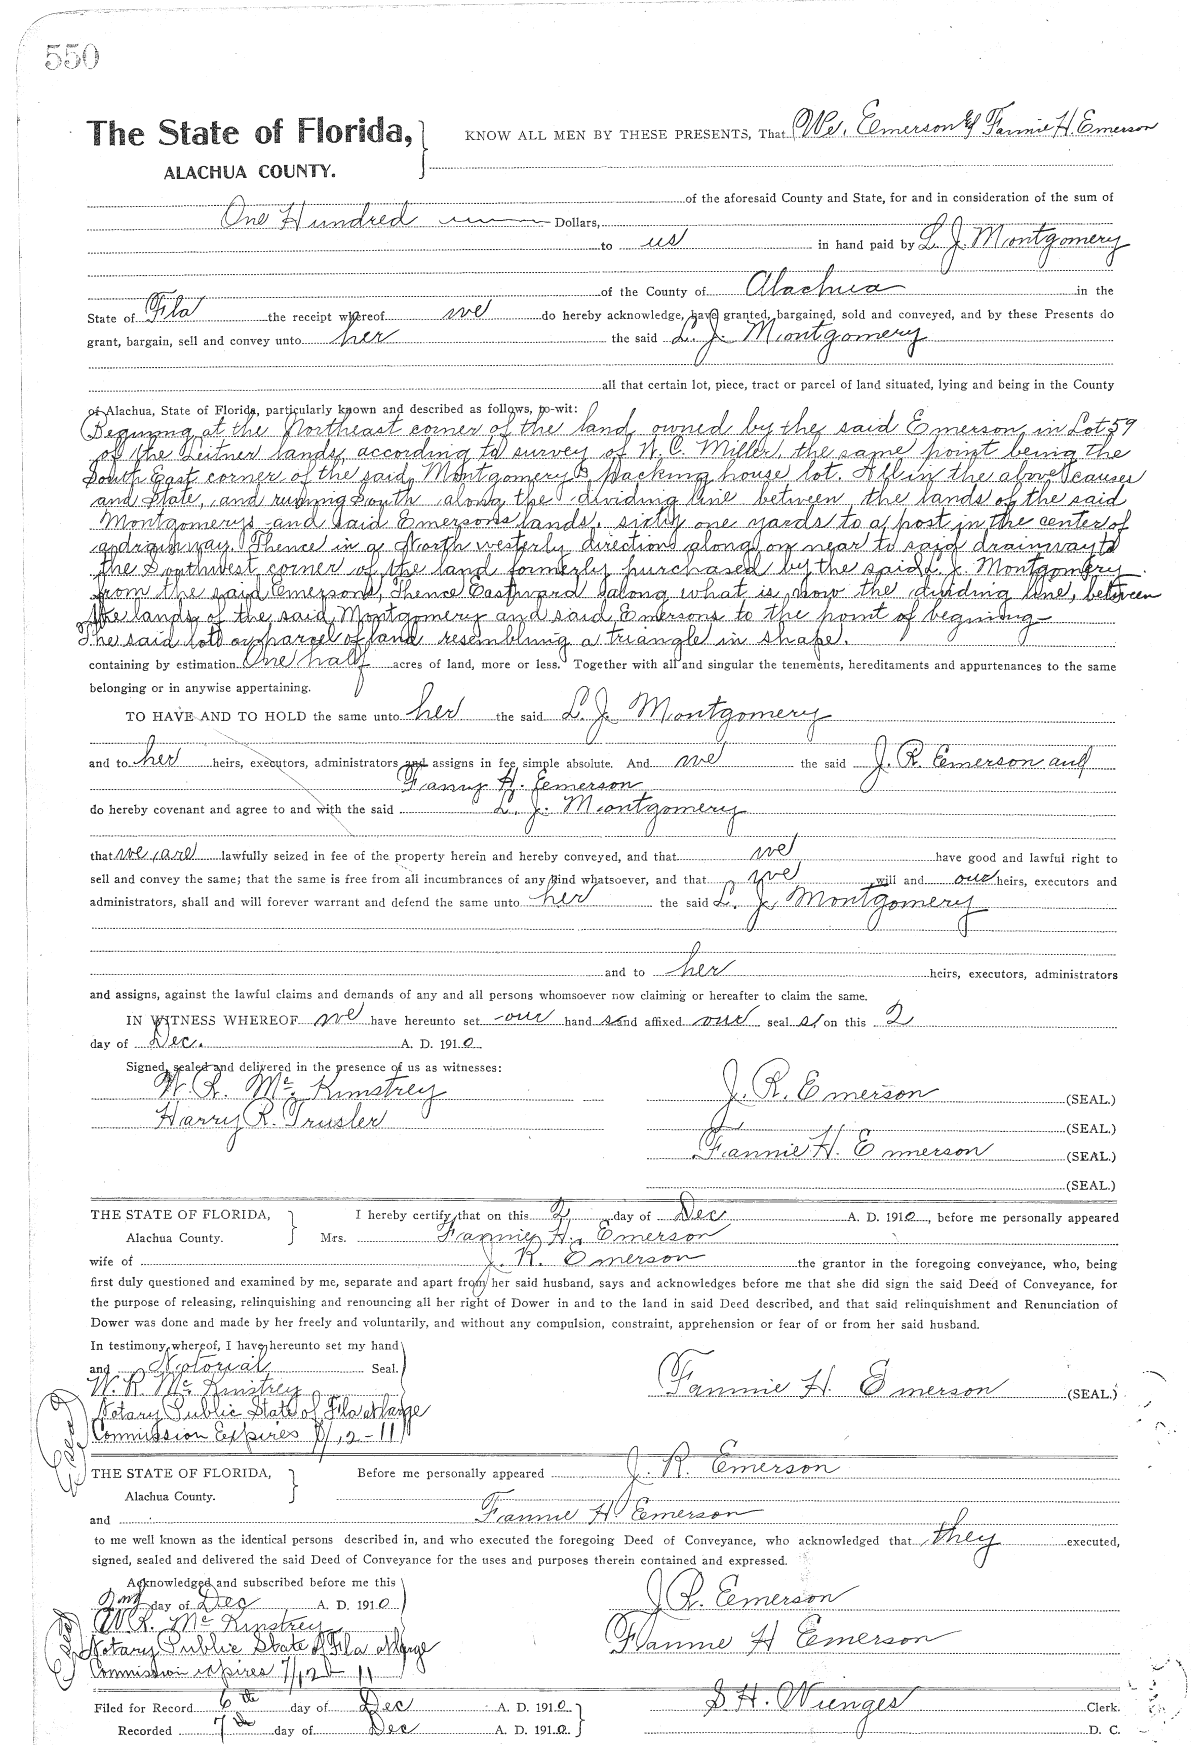 550
The State of Florida, KNOW ALL MEN BY THESE PRESENTS, That We, Emerson & Fannie H. Emerson
ALACHUA COUNTY.
of the aforesaid County and State, for and in consideration of the sum of
One Hundred Dollars,
to us in hand paid by L. J. Montgomery
of the County of Alachua in the
State of Fla the receipt whereof we do hereby acknowledge, have granted, bargained, sold and conveyed, and by these Presents do
grant, bargain, sell and convey unto her the said L. J. Montgomery
all that certain lot, piece, tract or parcel of land situated, lying and being in the County
of Alachua, State of Florida, particularly known and described as follows, to-wit:
Begining at the Northeast corner of the land owned by the said Emerson in Lot 59
of the Leitner lands, according to survey of N. C. Miller, the same point being the
South East corner of the said Montgomery's packing house lot. All in the above causes
and State, and running South along the dividing line between the lands of the said
Montgomerys and said Emersons lands, sixty one yards to a post in the center of
a drainway. Thence in a North westerly direction along on near to said drainway to
the Southwest corner of the land formerly purchased by the said L. J. Montgomery
from the said Emersons, Thence Eastward along what is now the dividing line, between
the lands of the said Montgomery and said Emersons to the point of begining-
The said lott or parcel of land resembling a triangle in shape.
containing by estimation One half acres of land, more or less. Together with all and singular the tenements, hereditaments and appurtenances to the same
belonging or in anywise appertaining.
TO HAVE AND TO HOLD the same unto her the said L. J. Montgomery
and to her heirs, executors, administrators and assigns in fee simple absolute. And we the said J. R. Emerson and
Fanny H. Emerson
do hereby covenant and agree to and with the said L. J. Montgomery
that we are lawfully seized in fee of the property herein and hereby conveyed, and that we have good and lawful right to
sell and convey the same; that the same is free from all incumbrances of any kind whatsoever, and that we will and our heirs, executors and
administrators, shall and will forever warrant and defend the same unto her the said L. J. Montgomery
and to her heirs, executors, administrators
and assigns, against the lawful claims and demands of any and all persons whomsoever now claiming or hereafter to claim the same.
IN WITNESS WHEREOF we have hereunto set our hand s and affixed our seal s on this 2
day of Dec. A. D. 1910
Signed, sealed and delivered in the presence of us as witnesses:
W. R. McKinstrey J. R. Emerson (SEAL.)
Harry R. Trusler (SEAL.)
Fannie H. Emerson (SEAL.)
(SEAL.)
THE STATE OF FLORIDA, I hereby certify that on this 2 day of Dec A. D. 1910, before me personally appeared
Alachua County. Mrs. Fannie H. Emerson
wife of J. R. Emerson the grantor in the foregoing conveyance, who, being
first duly questioned and examined by me, separate and apart from her said husband, says and acknowledges before me that she did sign the said Deed of Conveyance, for
the purpose of releasing, relinquishing and renouncing all her right of Dower in and to the land in said Deed described, and that said relinquishment and Renunciation of
Dower was done and made by her freely and voluntarily, and without any compulsion, constraint, apprehension or fear of or from her said husband.
In testimony whereof, I have hereunto set my hand
and Notorial Seal.
W. R. McKinstrey Fannie H Emerson (SEAL.)
Notary Public State of Fla at large
Commission Expires 7/12-11
(Seal)
THE STATE OF FLORIDA, Before me personally appeared J. R. Emerson
Alachua County.
and Fannie H Emerson
to me well known as the identical persons described in, and who executed the foregoing Deed of Conveyance, who acknowledged that they executed,
signed, sealed and delivered the said Deed of Conveyance for the uses and purposes therein contained and expressed.
Acknowledged and subscribed before me this
2nd day of Dec A. D. 1910 J. R. Emerson
W. R. McKinstrey Fannie H Emerson
Notary Public State of Fla at large
Commission expires 7/12-11
(Seal)
Filed for Record 6th day of Dec A. D. 1910 S. H. Wienges Clerk.
Recorded 7th day of Dec A. D. 1910. D. C.